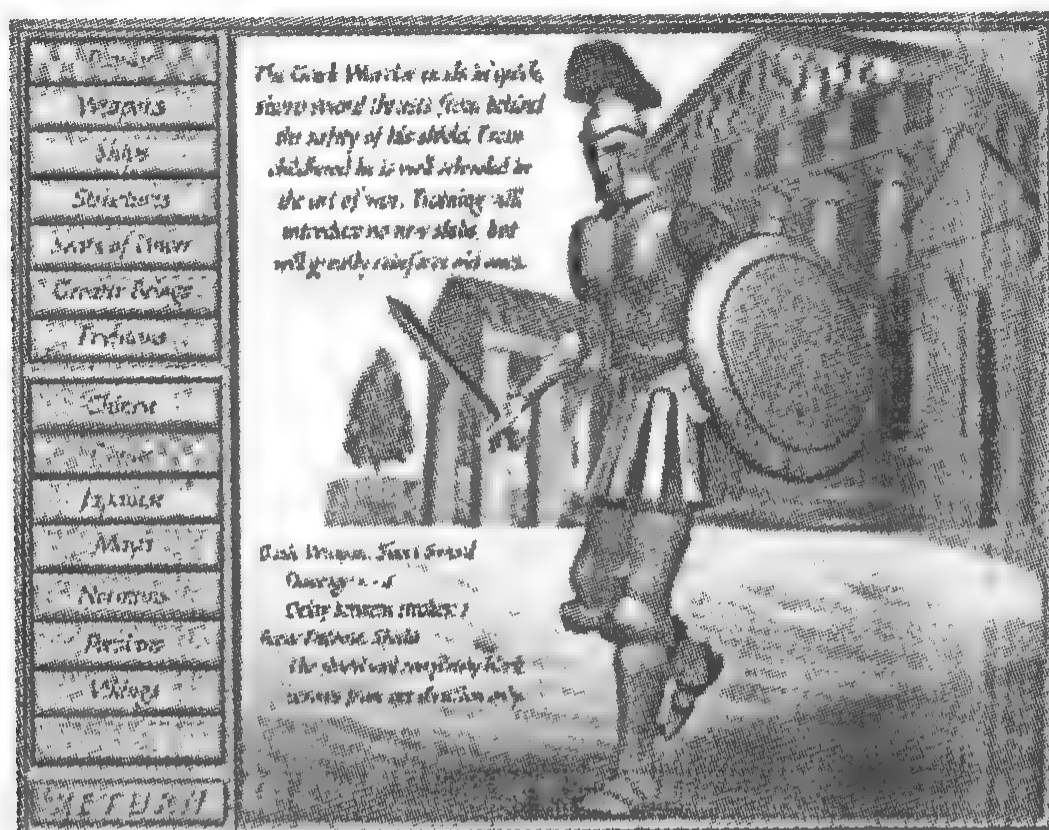 Weapons
Ships
Structures
Seats of Power
Greater Beings
Chinese
Japanese
Maya
Normans
Persians
Vikings
RETURN
The Greek Warrior
sword thrusts from behind
the safety of his shield. From
childhood he is well schooled in
the art of war. Training will
introduce no new skills, but
will greatly reinforce old ones.
Basic Weapon: Short Sword
Damage:
Delay between strokes:
Basic Defense: Shield
The shield will completely block
arrows from one direction only.